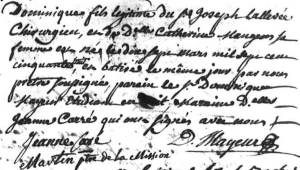 Dominique fils legitime du Sr Joseph Lallevée
Chirurgien, et de Dlle Catherine Mangeon sa
femme est né le dixsept mars mil sept cent
cinquante et batisé le même jour par nous
pretre soussigné parain le Sr Dominique
Mayeur Maraine Dlle
Jeanne Carré qui ont signés avec nous
Jeanne Carré D. Mayeur
Martin ptre de la Mission